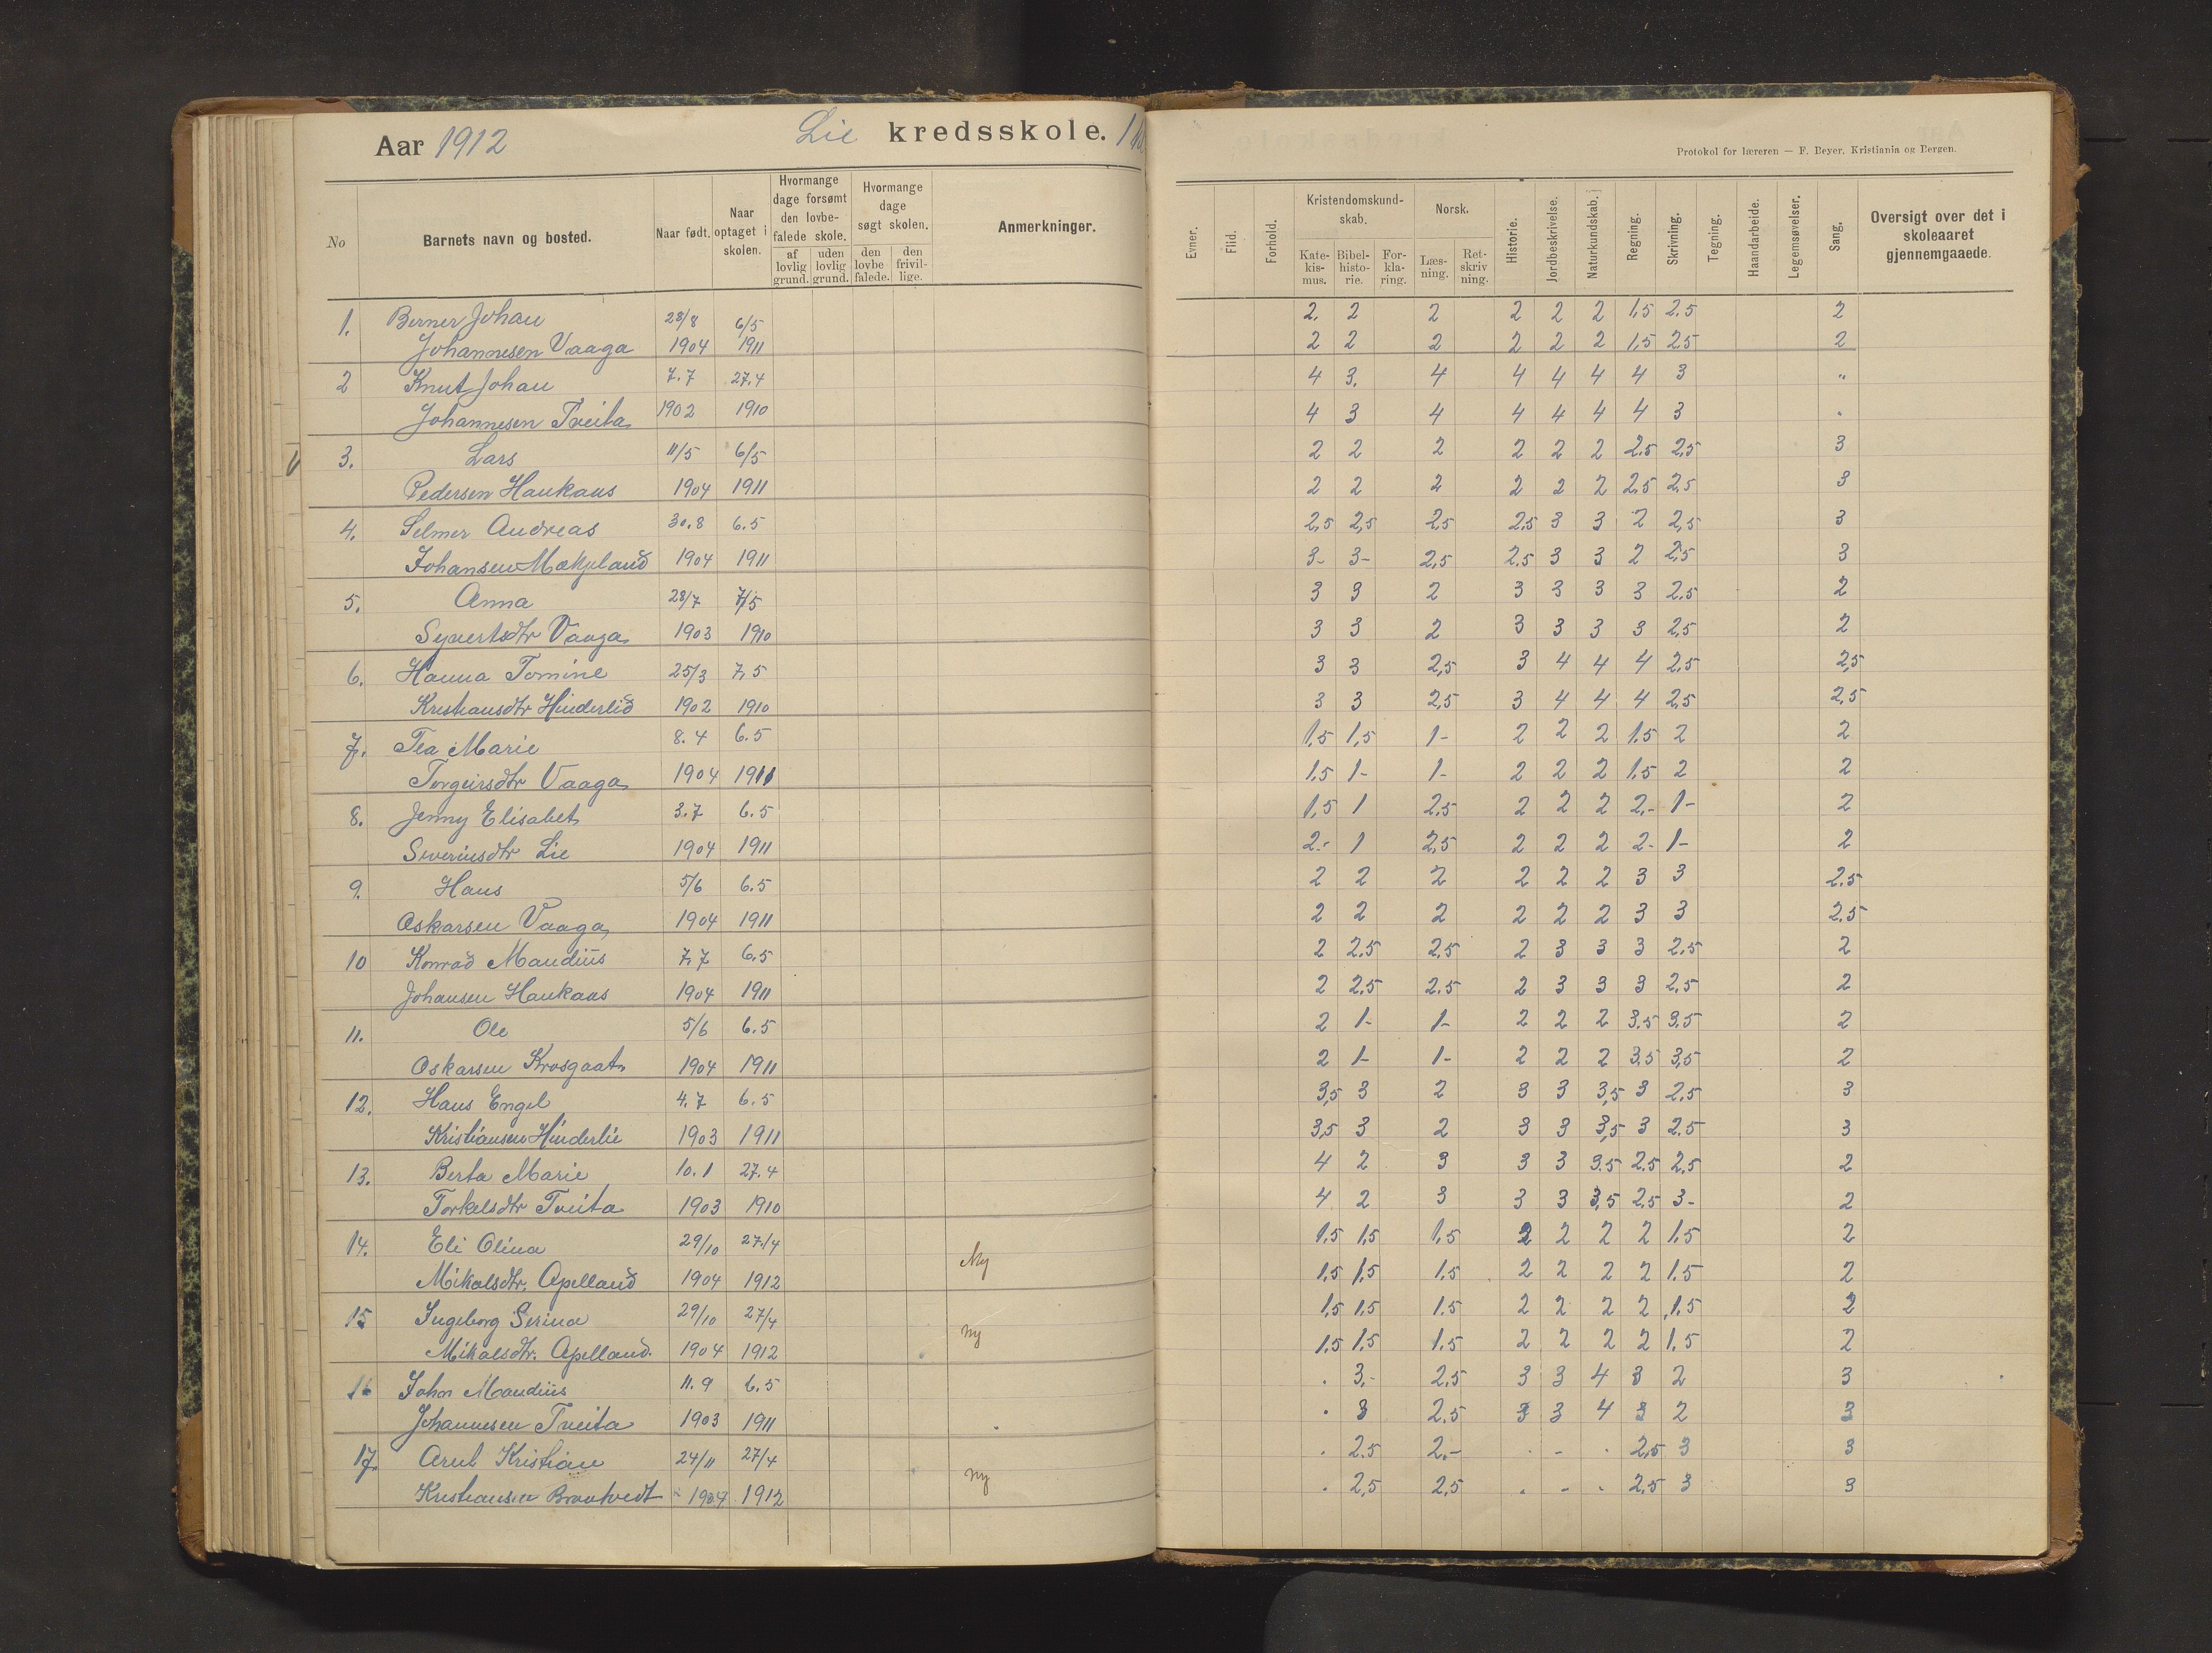 Aar 1912 Lie kredsskole. 1
Protokol for læreren — F. Beyer, Kristiania og Bergen.
No Barnets navn og bosted. Naar født. Naar optaget i skolen. Hvormange dage forsømt den lovbefalede skole. af lovlig grund. uden lovlig grund. Hvormange dage søgt skolen. den lovbefalede. den frivillige. Anmerkninger. Evner. Flid. Forhold. Kristendomskundskab. Katekismus. Bibelhistorie. Forklaring. Norsk. Læsning. Retskrivning. Historie. Jordbeskrivelse. Naturkundskab. Regning. Skrivning. Tegning. Haandarbeide. Legemsøvelser. Sang. Oversigt over det i skoleaaret gjennemgaaede.
1. Berner Johan 28/8 6/5 2. 2 2 2 2 2 1,5 2.5 2
Johannesen Vaaga 1904 1911 2 2 2 2 2 2 1,5 2,5 2
2 Knut Johan 7.7 27.4 4 3. 4 4 4 4 4 3 "
Johannesen Tveita 1902 1910 4 3 4 4 4 4 4 3 .
V 3. Lars 11/5 6/5 2 2 2 2 2 2 2.5 2,5 3
Pedersen Haukaas 1904 1911 2 2 2 2 2 2 2,5 2,5 3
4. Selmer Andreas 30.8 6.5 2,5 2,5 2,5 2,5 3 3 2 2,5 3
Johansen 1904 1911 3- 3- 2,5 2.5 3 3 2 2,5 3
5. Anna 28/7 7/5 3 3 2 3 3 3 3 2.5 2
Syvertsdtr Vaaga 1903 1910 3 3 2 3 3 3 3 2,5 2
6. Hanna Tomine 25/3 7.5 3 3 2,5 3 4 4 4 2,5 2,5
Kristiansdtr Hinderlid 1902 1910 3 3 2,5 3 4 4 4 2,5 2,5
7. Tea Marie 8.4 6.5 1,5 1,5 1- 2 2 2 1.5 2 2
Torgeirsdtr Vaaga 1904 1911 1.5 1- 1- 2 2 2 1.5 2 2
8. Jenny Elisabet 3.7 6.5 1,5 1 2,5 2 2 2 2.- 1- 2
Severinsdtr Lie 1904 1911 2.- 1 2,5 2 2 2 2- 1- 2
9. Hans 5/6 6.5 2 2 2 2 2 2 3 3 2.5
Oskarsen Vaaga 1904 1911 2 2 2 2 2 2 3 3 2.5
10 Konrad Maudius 7.7 6.5 2 2.5 2,5 2 3 3 3 2.5 2
Johansen Haukaas 1904 1911 2 2.5 2.5 2 3 3 3 2,5 2
11. Ole 5/6 6.5 2 1- 1- 2 2 2 3.5 3.5 2
Oskarsen Krosgaat 1904 1911 2 1- 1- 2 2 2 3,5 3,5 2
12. Hans Engel 4.7 6.5 3,5 3 2 3 3 3,5 3 2.5 3
Kristiansen Hinderlie 1903 1911 3,5 3 2 3 3 3,5 3 2.5 3
13. Berta Marie 10.1 27.4 4 2 3 3 3 3.5 2.5 2,5 2
Torkelsdtr Tveita 1903 1910 4 2 3 3 3 3,5 2,5 3- 2
14. Eli Olina 29/10 27/4 1,5 1,5 1,5 2 2 2 2 1.5 2
Mikalsdtr. Apelland 1904 1912 Ny 1,5 1,5 1.5 2 2 2 2 1.5 2
15 Ingeborg Serina 29/10 27/4 1,5 1,5 1.5 2 2 2 2 1.5 2
Mikalsdtr. Apelland. 1904 1912 ny 1,5 1,5 1.5 2 2 2 2 1,5 2
16 Johan Maudius 11.9 6.5 . 3.- 2.5 3 3 4 3 2 3
Johannesen Tveita 1903 1911 . 3 2.5 3 3 4 3 2 3
17. Arnt Kristian 24/11 27/4 . 2.5 2.- . - . 2,5 3 3
Kristiansen 1904 1912 ny . 2,5 2,5 . - . 2,5 3 3